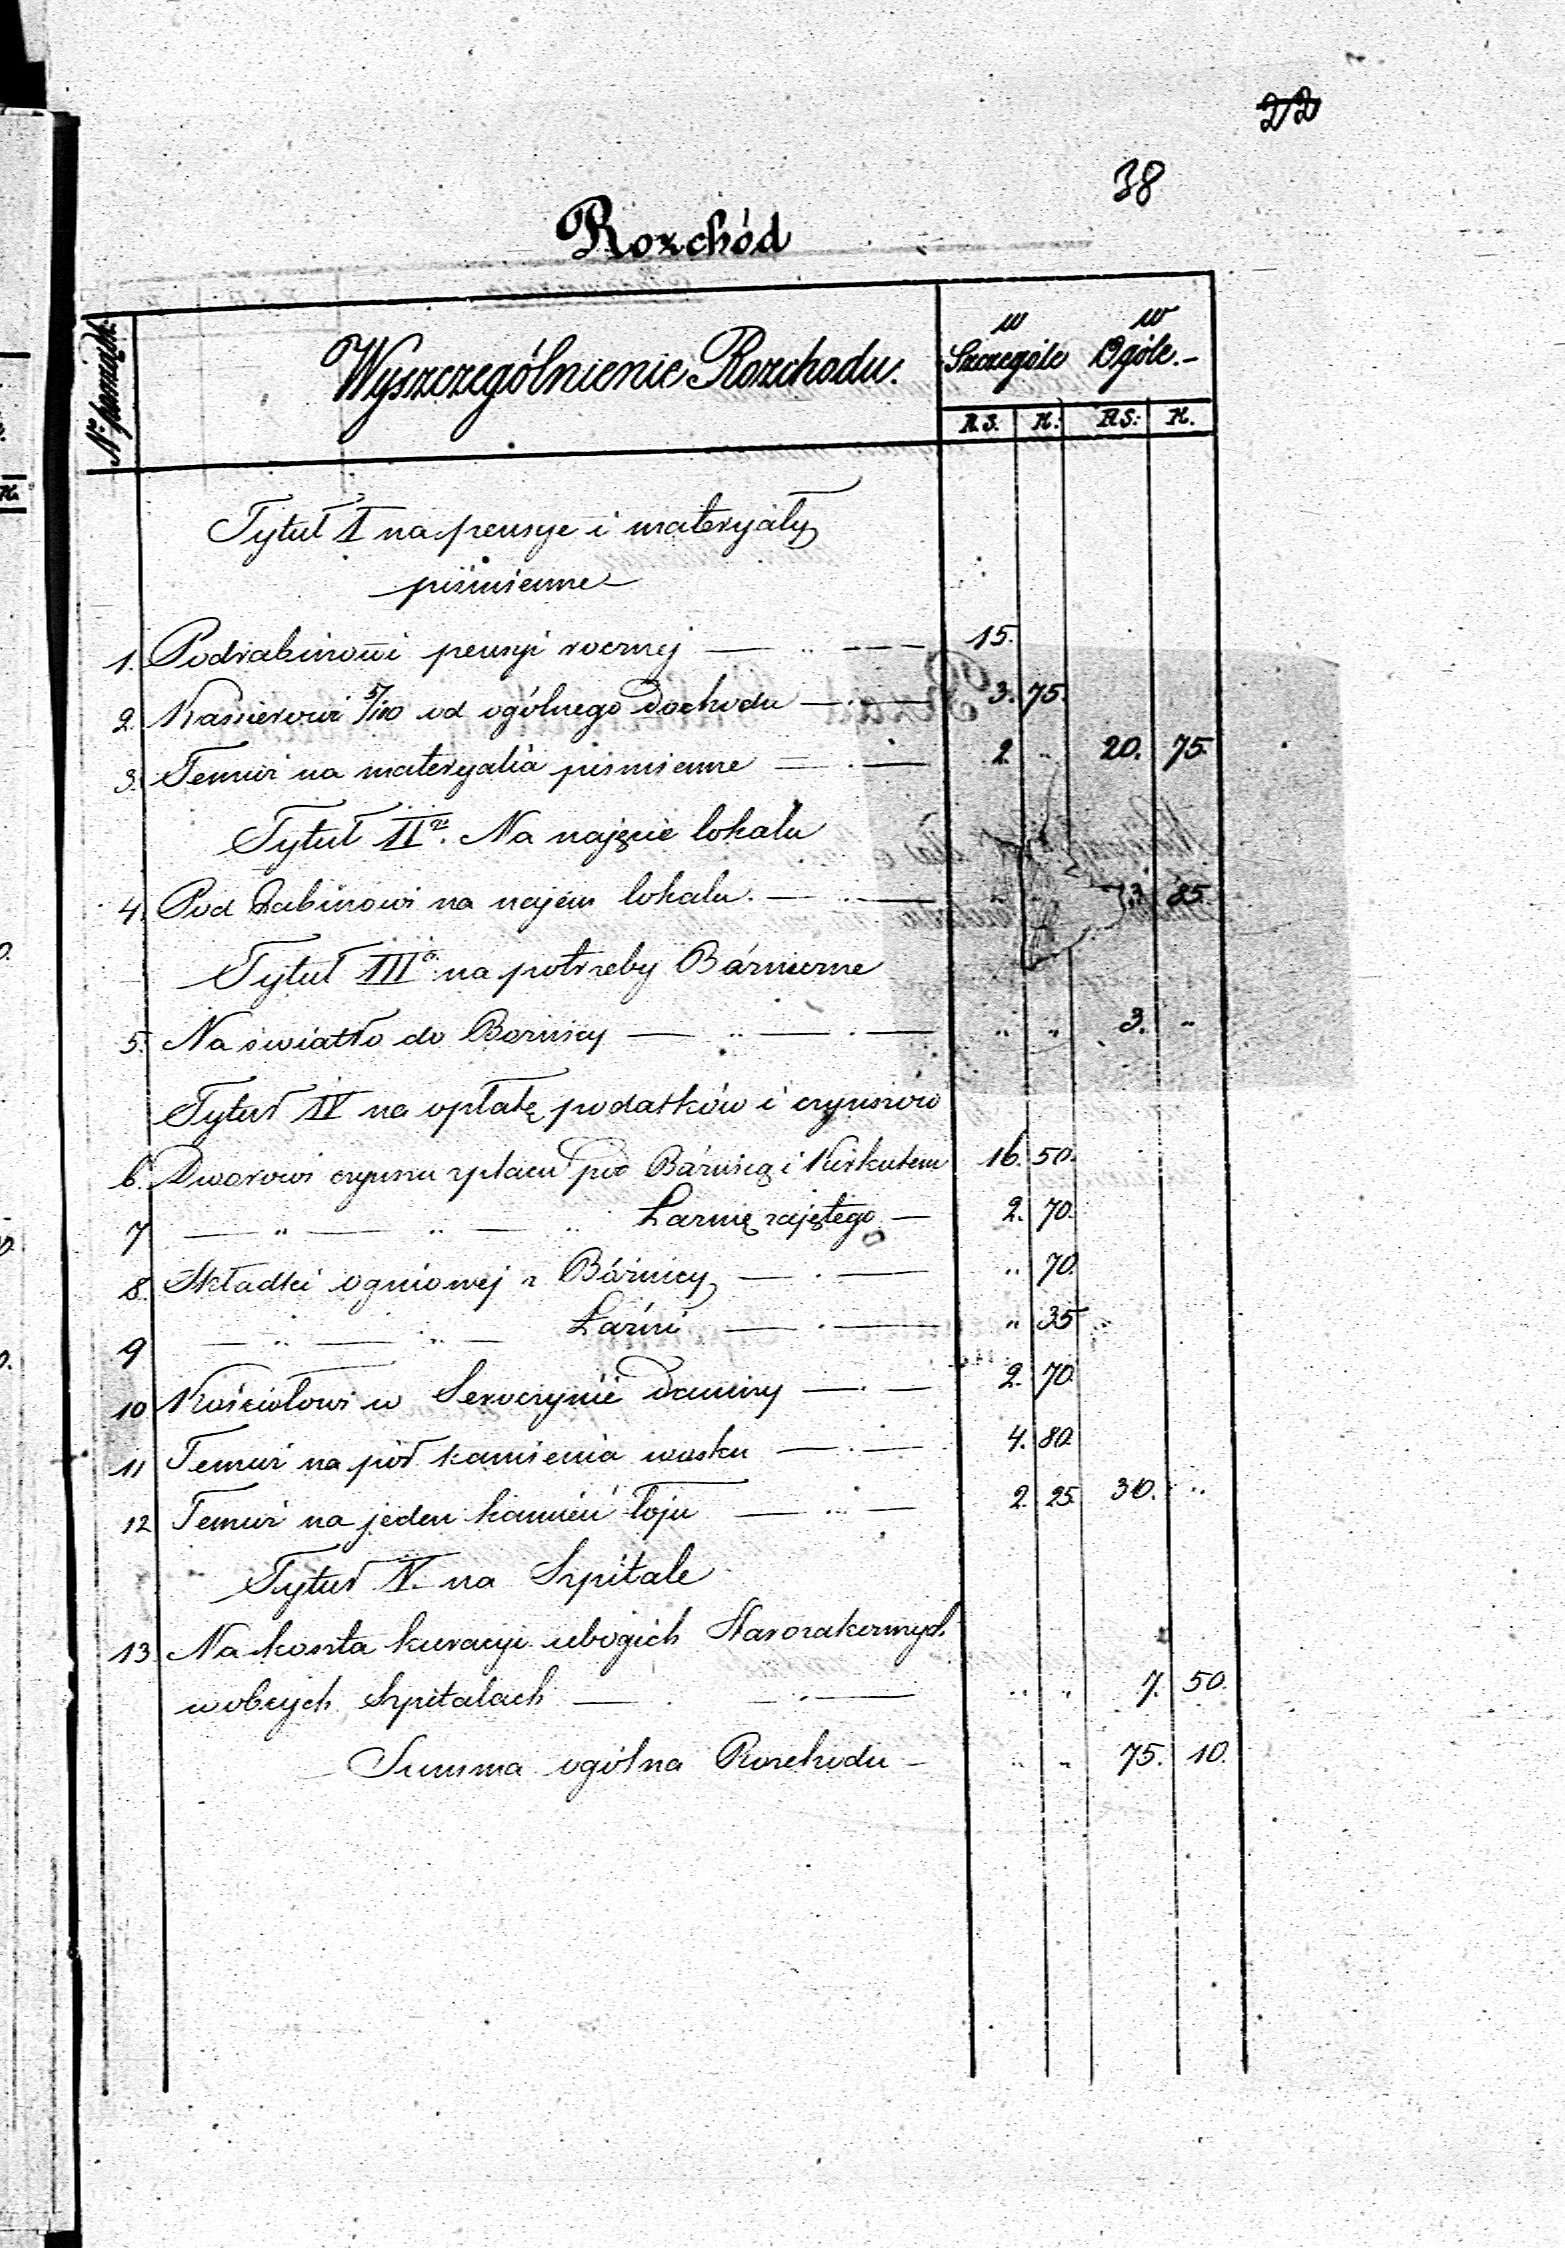 22
38
Rozchód
Nr porządk: Wyszczególnienie Rozchodu. w Szczególe w Ogóle.-
R.S. K. R.S: K.
Tytuł I na pensye i materyały
piśmienne
1. Podrabinowi pensyi rocznej 15.
2. Kassierowi 5/100 od ogólnego dochodu 3. 75.
3. Temuż na materyalia piśmienne 2. " 20. 75.
Tytuł II. Na najęcie lokalu
4. Pod Rabinowi na najem lokalu. " " 13. 85.
Tytuł III na potrzeby Bóżniczne
5. Na światło do Bożnicy " " 3. "
Tytuł IV na opłatę podatków i czynszów
6. Dworowi czynszu z placu pod Bóżnicą i Kirkutem 16. 50.
7 " " " Łaźnię zajętego 2. 70.
8. Składki ogniowej z Bóżnicy " 70.
9 " " Łaźni " 35
10 Kościołowi w Seroczynie daniny 2. 70.
11 Temuż na pół kamienia wosku 4. 80.
12 Temuż na jeden kamień łoju 2. 25. 30. "
Tytuł V. na Szpitale
13 Na koszta kuracyi ubogich Starozakonnych
w obcych Szpitalach " " 7. 50.
Summa ogólna Rozchodu " " 75. 10.